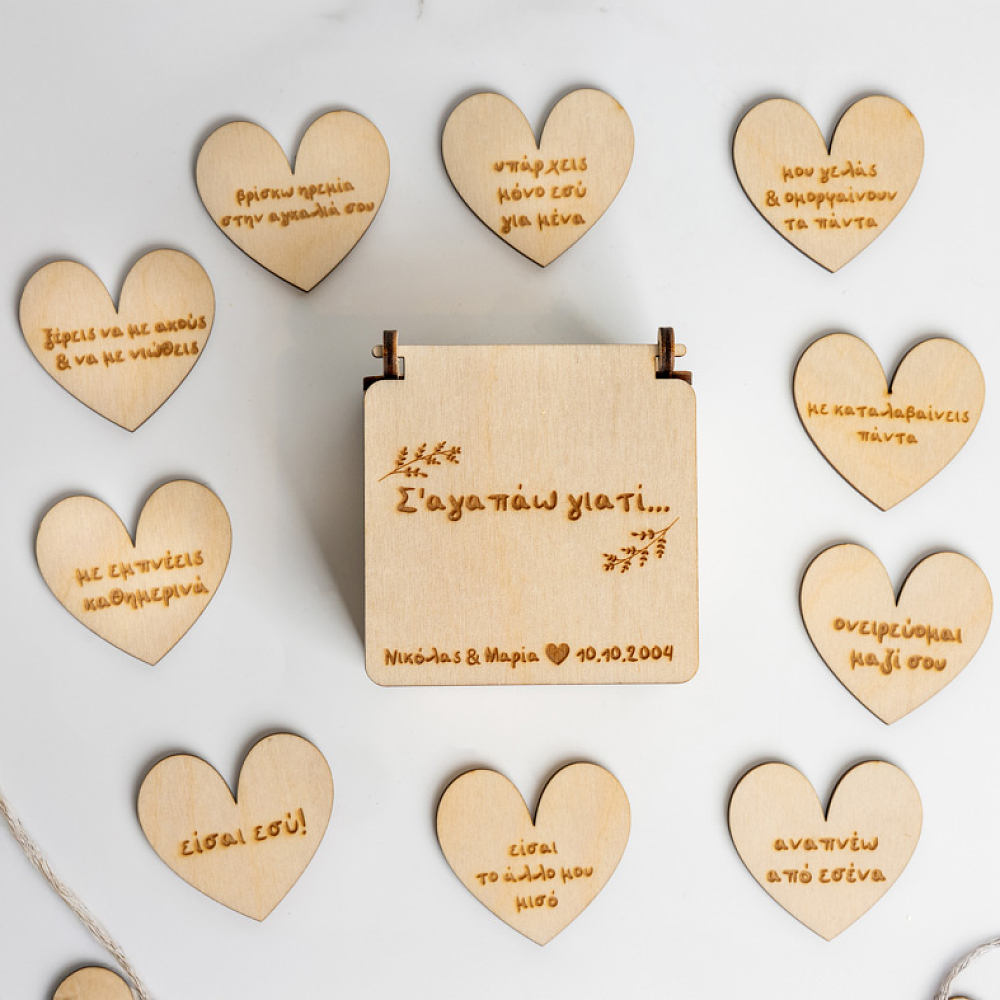 βρίσκω ηρεμία
στην αγκαλιά σου
υπάρχεις
μόνο εσύ
για μένα
μου γελάς
& ομορφαίνουν
τα πάντα
ξέρεις να με ακούς
& να με νιώθεις
με καταλαβαίνεις
πάντα
Σ'αγαπάω γιατί...
Νικόλας & Μαρία ♥ 10.10.2004
με εμπνέεις
καθημερινά
ονειρεύομαι
μαζί σου
είσαι εσύ!
είσαι
το άλλο μου
μισό
αναπνέω
από εσένα